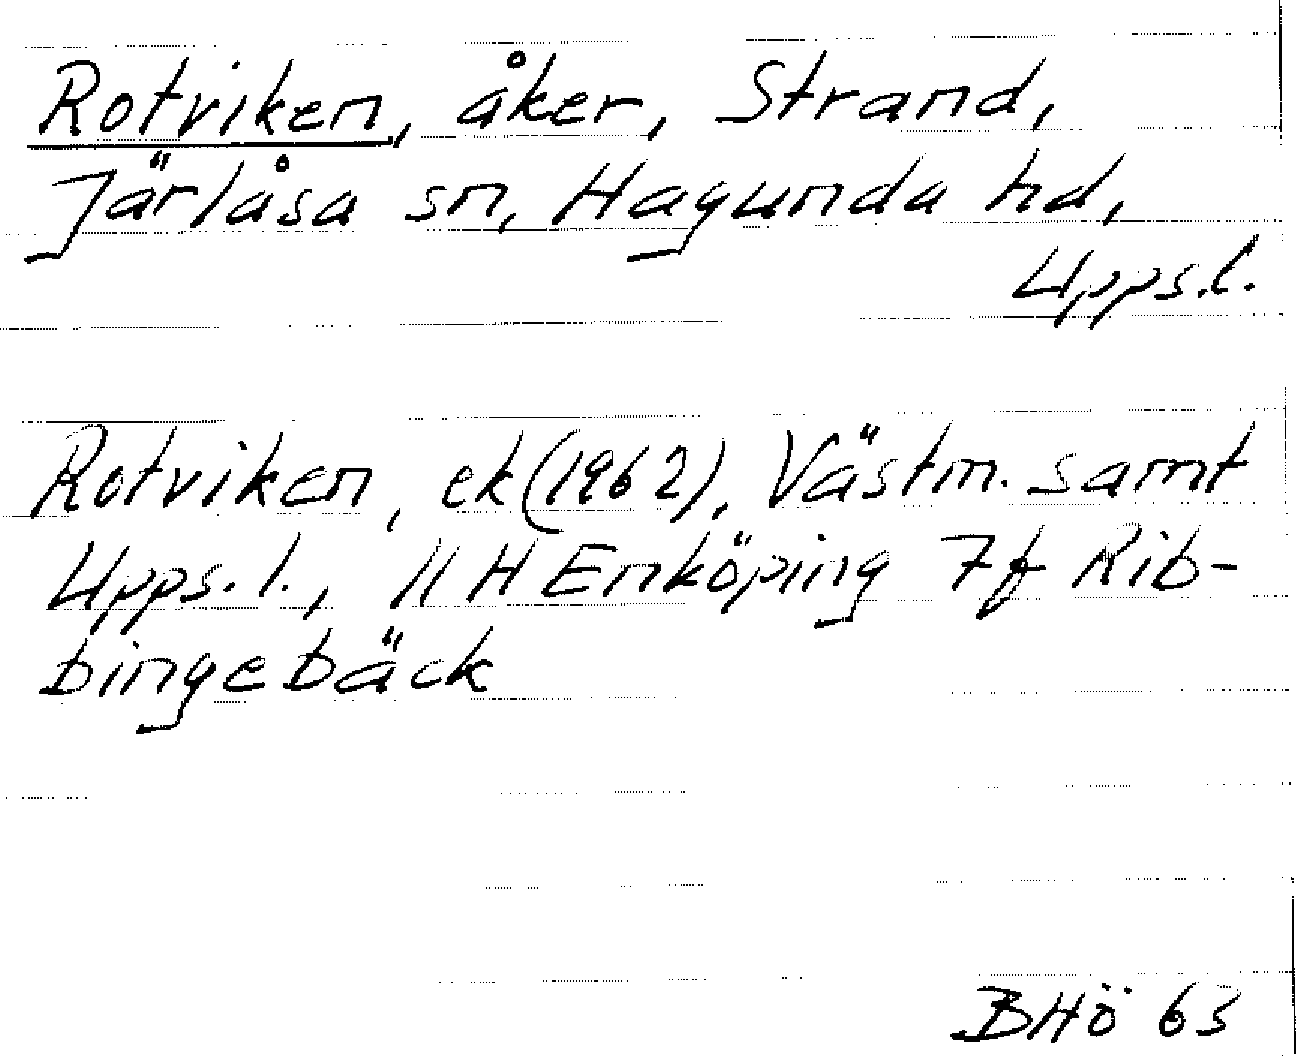 Rotviken, åker, Strand,
Järlåsa sn, Hagunda hd,
Upps.l.
Rotviken, ek (1962), Västm. samt
Upps. l., 11 H Enköping 7f Rib-
bingebäck
BHö 63